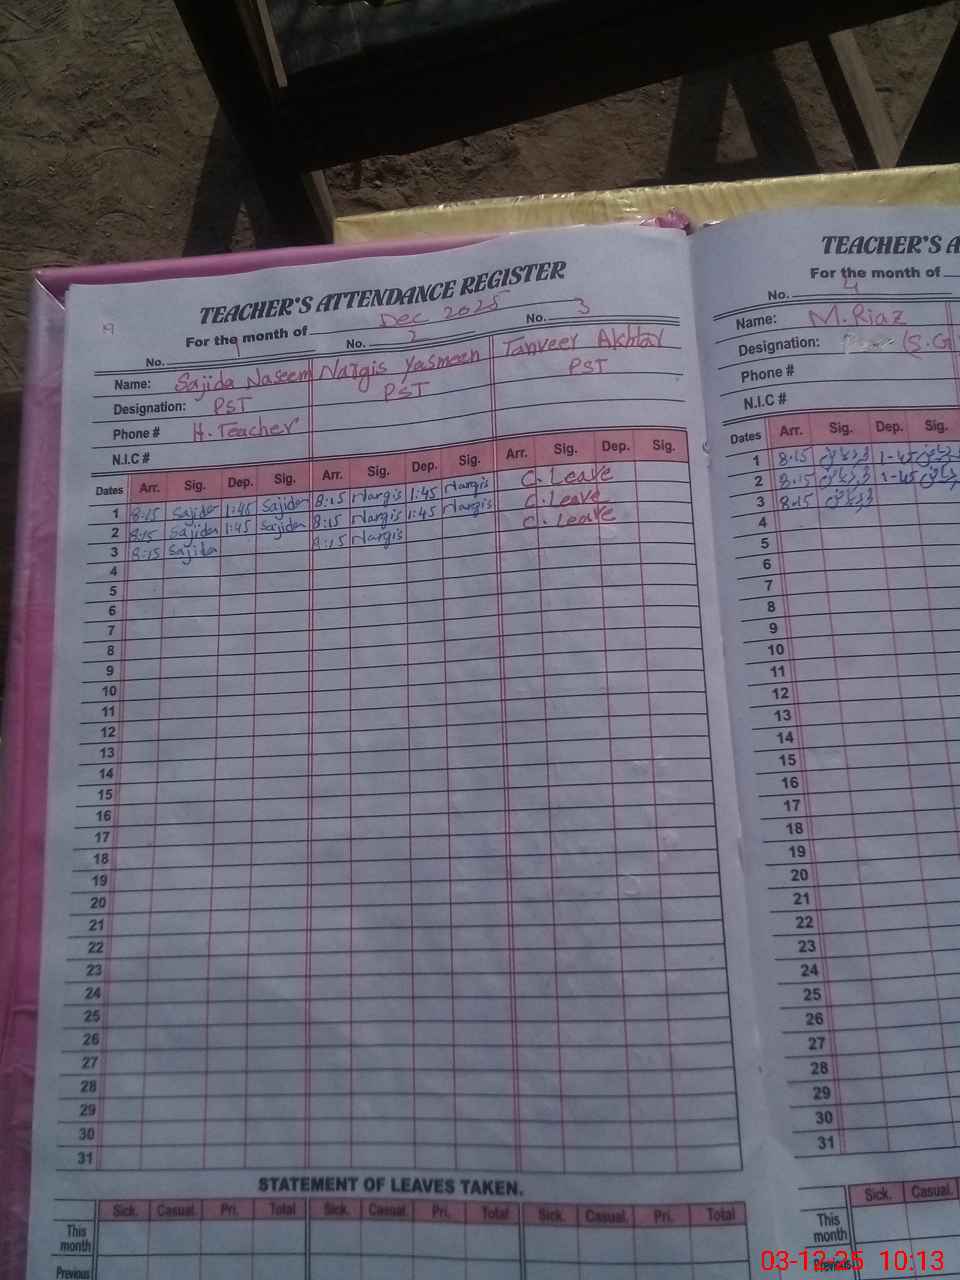 19
TEACHER'S ATTENDANCE REGISTER
For the month of Dec 2025
No. 1 No. 2 No. 3
Name: Sajida Naseem Nargis Yasmeen Tanveer Akhtar
Designation: PST PST PST
Phone # H. Teacher
N.I.C #
Dates Arr. Sig. Dep. Sig. Arr. Sig. Dep. Sig. Arr. Sig. Dep. Sig.
1 8:15 Sajida 1:45 Sajida 8:15 Nargis 1:45 Nargis C. Leave
2 8:15 Sajida 1:45 Sajida 8:15 Nargis 1:45 Nargis C. Leave
3 8:15 Sajida 8:15 Nargis C. Leave
4
5
6
7
8
9
10
11
12
13
14
15
16
17
18
19
20
21
22
23
24
25
26
27
28
29
30
31
STATEMENT OF LEAVES TAKEN.
Sick. Casual. Pri. Total Sick. Casual. Pri. Total Sick. Casual. Pri. Total
This month
Previous
TEACHER'S A
For the month of
No. 4
Name: M. Riaz
Designation: (S.G
Phone #
N.I.C #
Dates Arr. Sig. Dep. Sig.
1 8:15 1-45
2 8:15 1-45
3 8:15
4
5
6
7
8
9
10
11
12
13
14
15
16
17
18
19
20
21
22
23
24
25
26
27
28
29
30
31
Sick. Casual.
This month
Previous
03-12-25 10:13